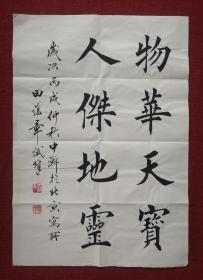 物華天寶
人傑地靈
歲次丙戌仲秋中浣於北京寓所
田蘊章試筆